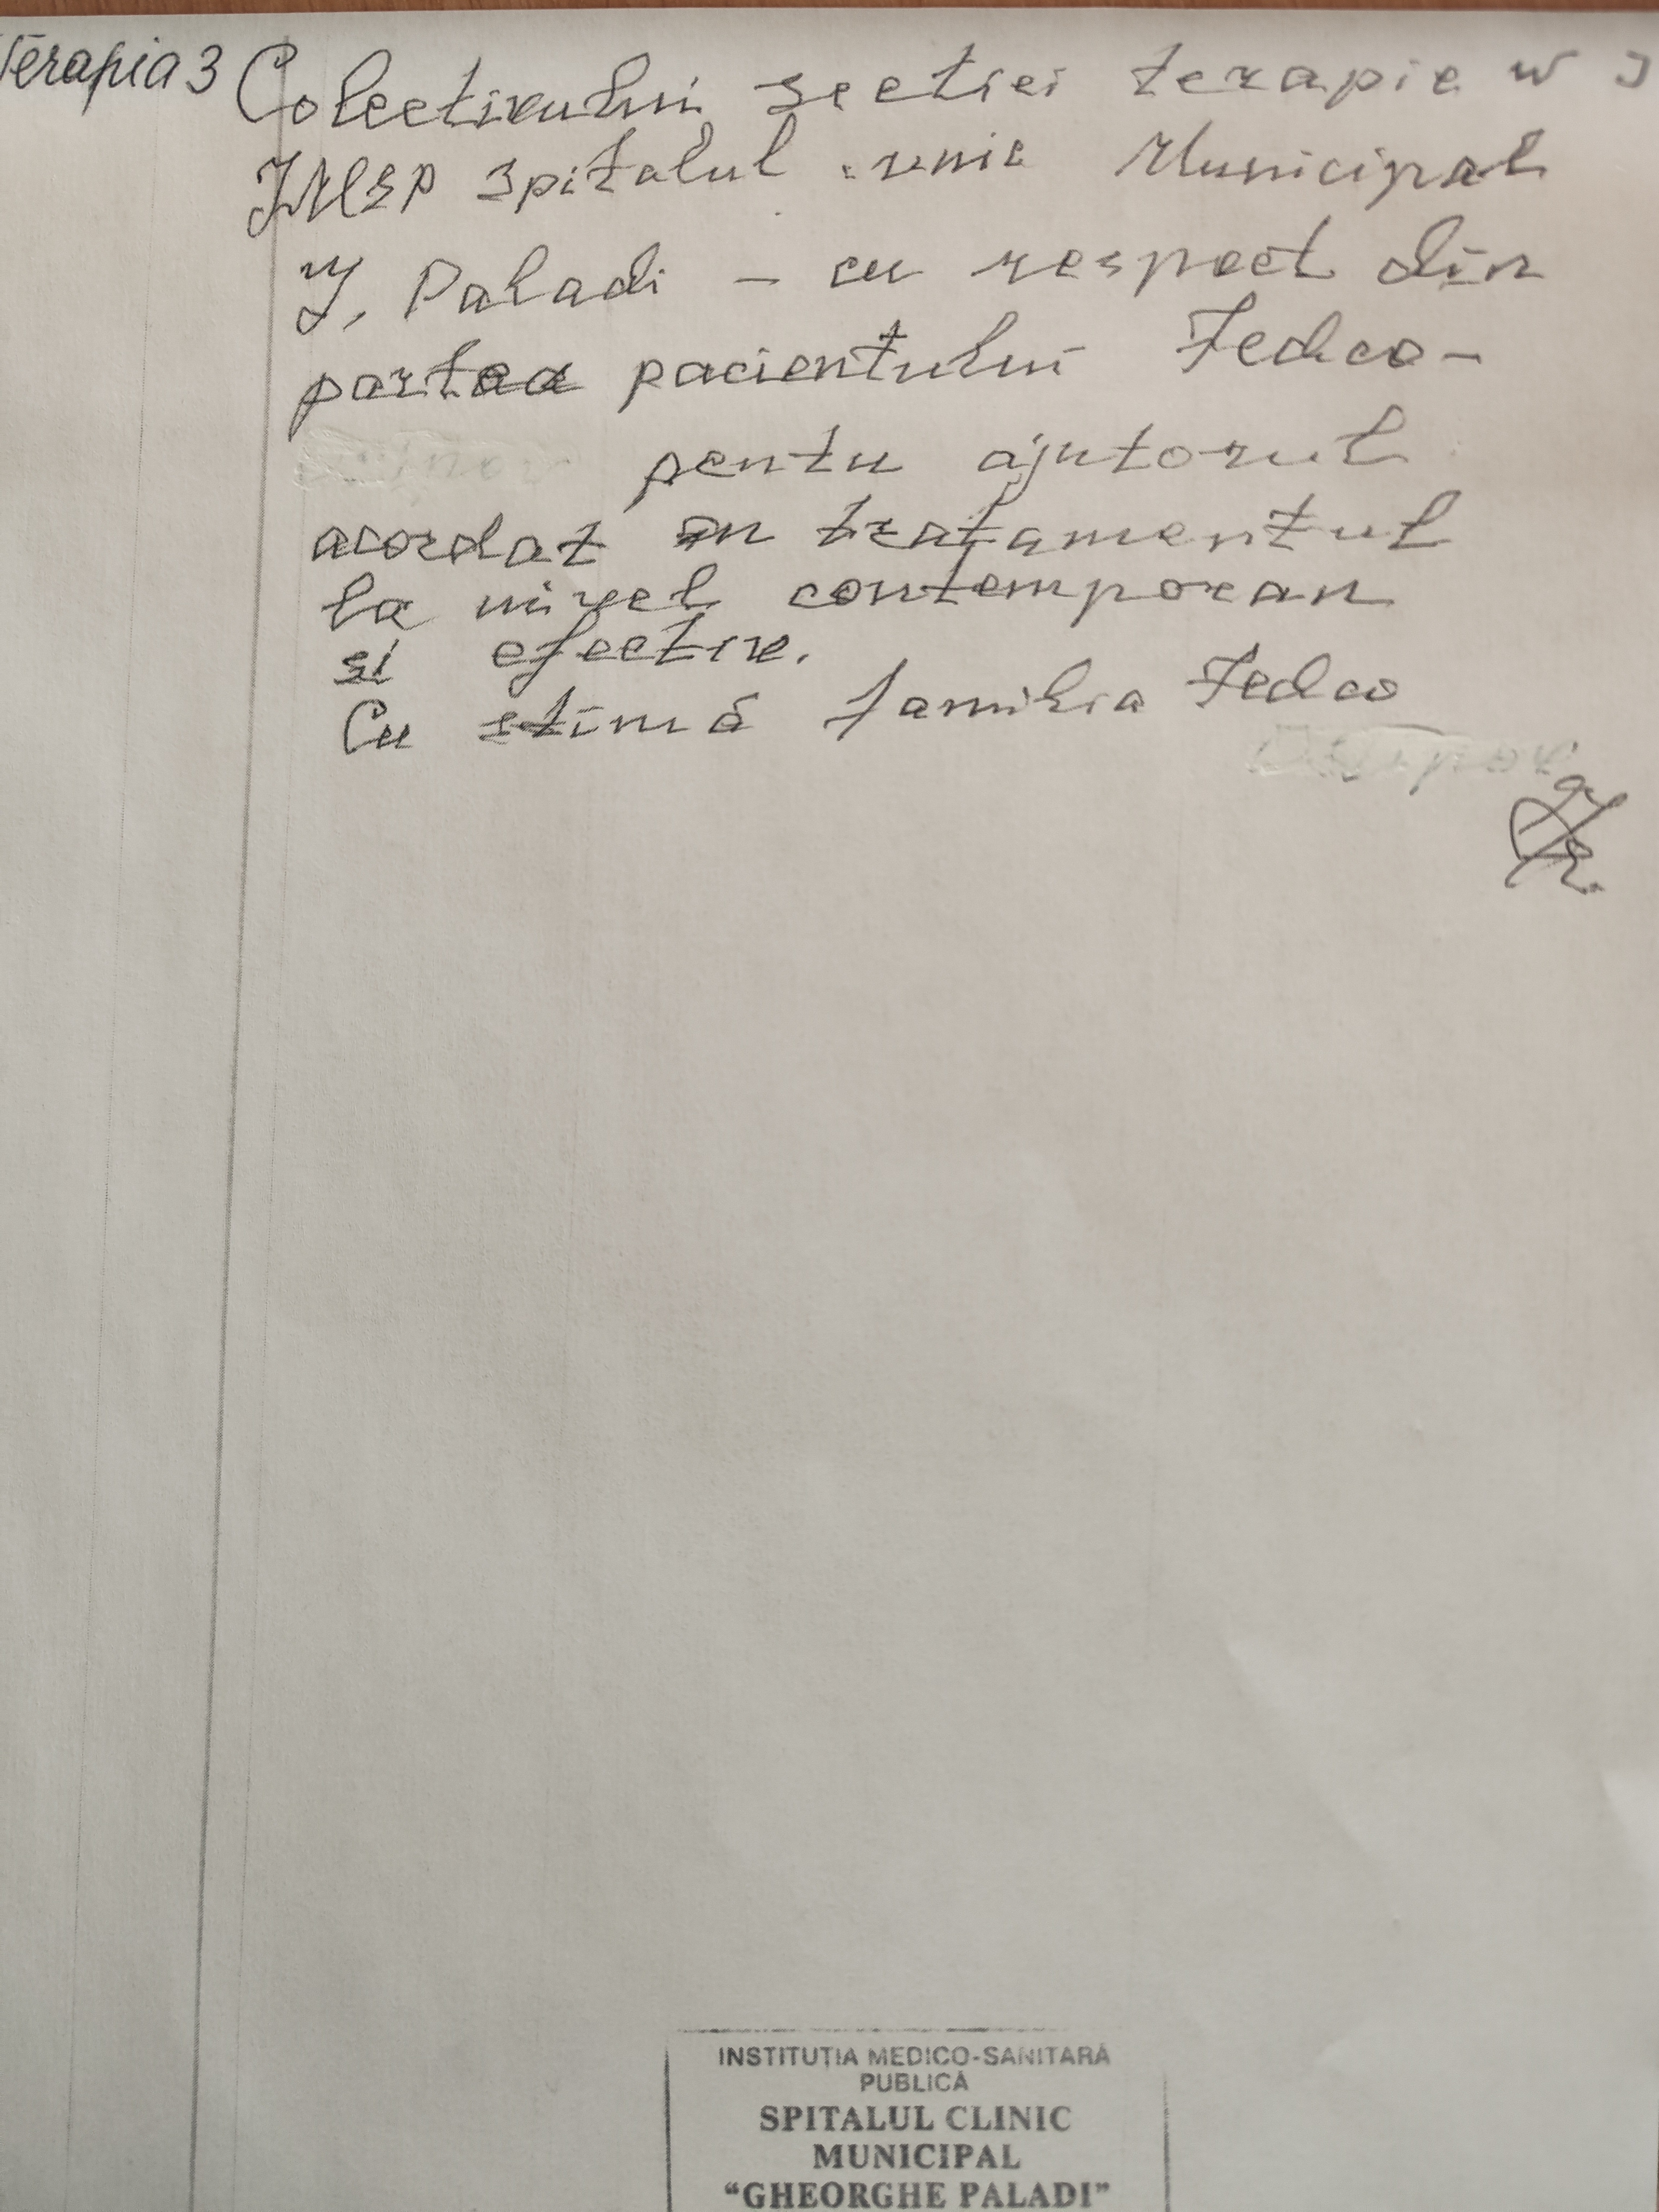 Terapia 3
Colectivului sectiei terapie N 3
IMSP spitalul Municipal
G. Paladi - cu respect din
partea pacientului Fedco-
pentu ajutorul
acordat în tratamentul
la nivel contemporan
si efectiv.
Cu stimă familia Fedco
INSTITUȚIA MEDICO-SANITARĂ
PUBLICĂ
SPITALUL CLINIC
MUNICIPAL
“GHEORGHE PALADI”